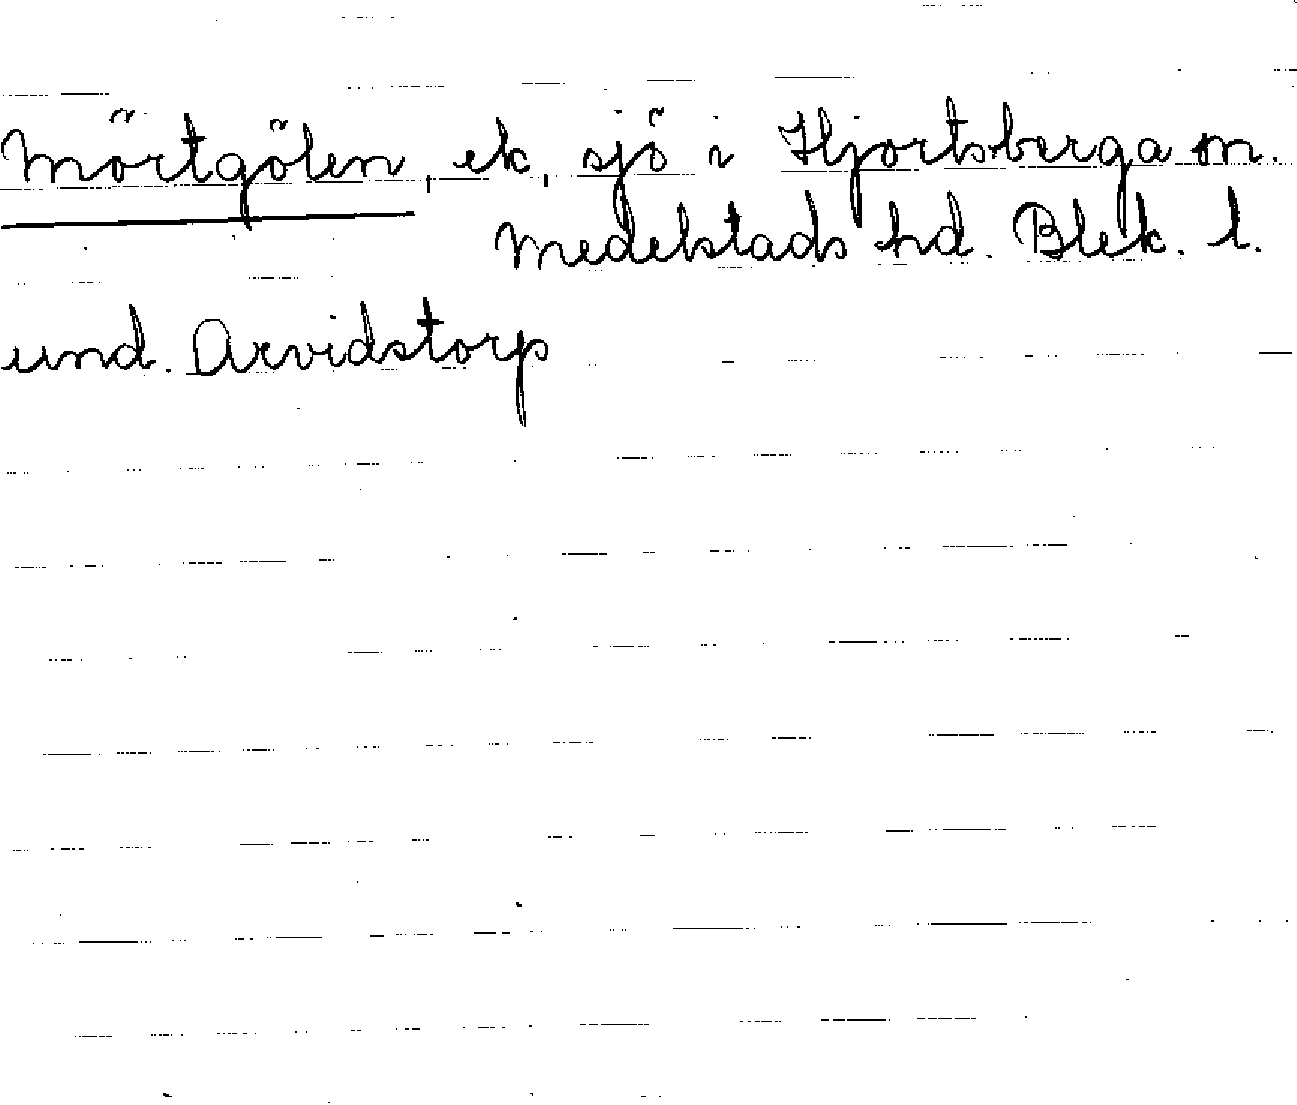 Mörtgölen, ek, sjö i Hjortsberga sn.
Medelstads hd. Blek. l.
und. Arvidstorp